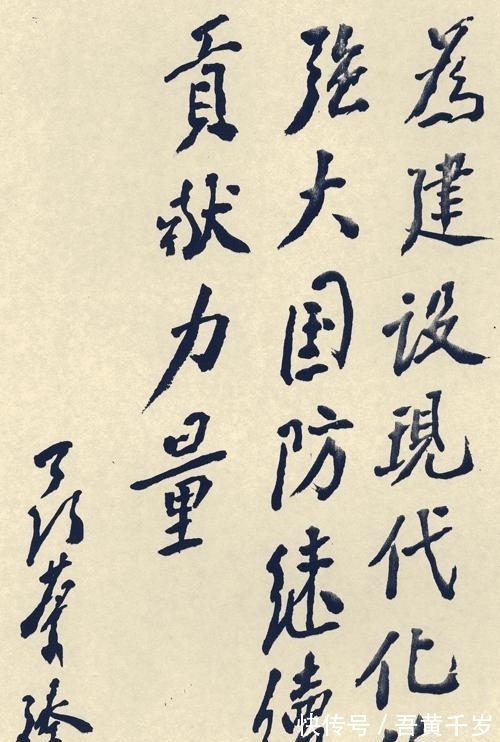 為建設現代化
强大国防继續
貢献力量
快传号 / 吾黄千岁